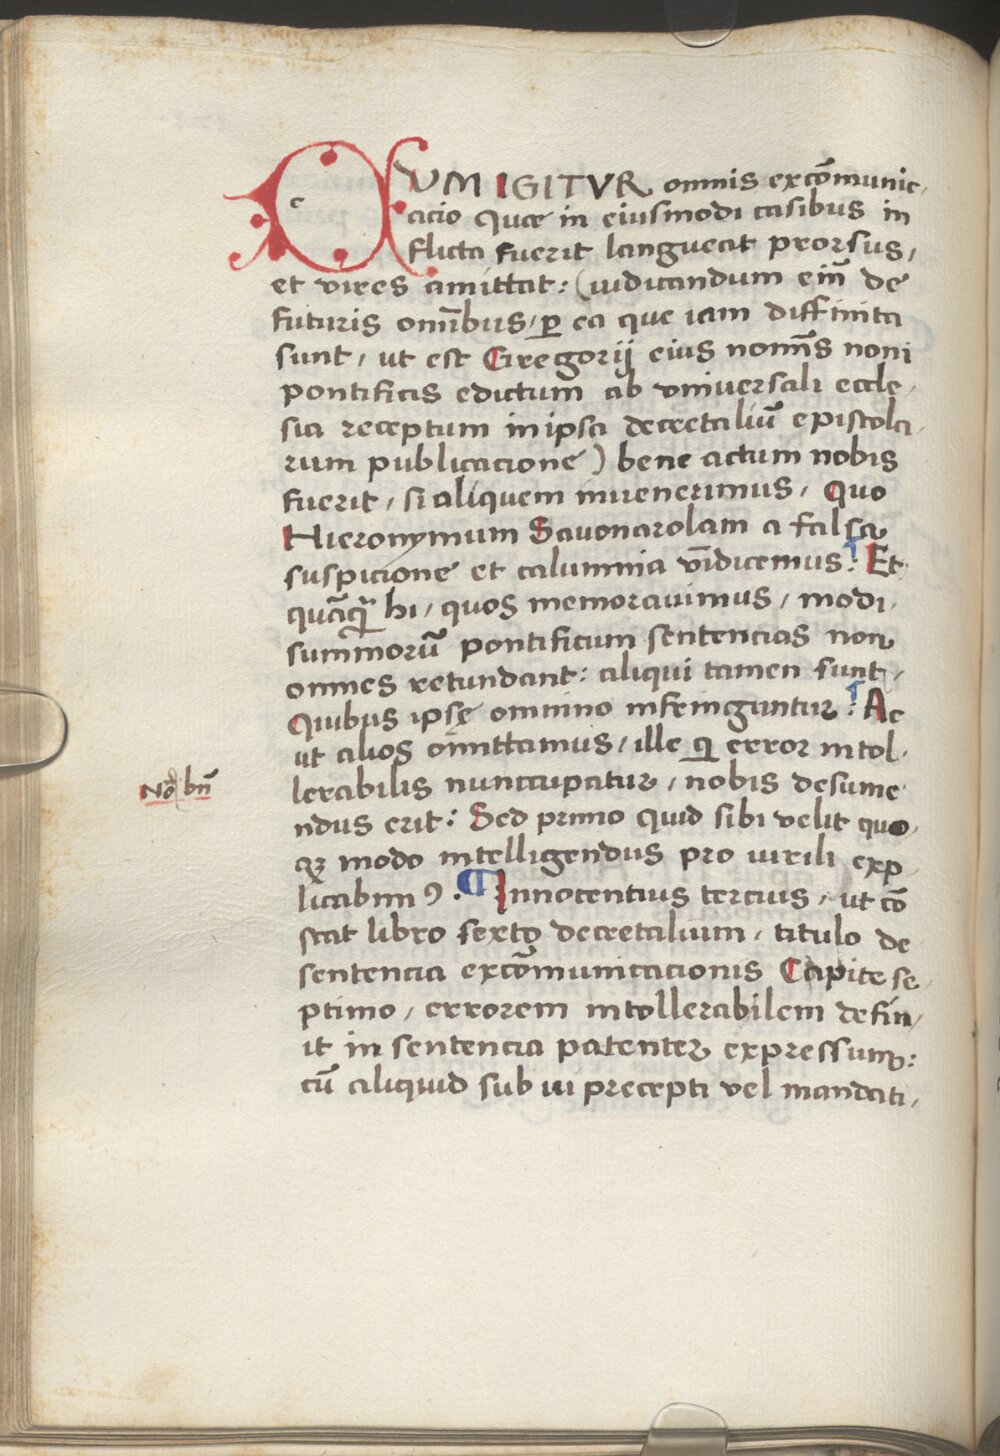 CUM IGITVR omnis excōmunic,
acio quae in eiusmodi casibus in
flicta fuerit langueat prorsus,
et vires amittat: (iudicandum eīn de
futuris om̄ibus, ꝑ ea que iam diffinita
sunt, ut est Gregorij eius nom̄s noni
pontificis edictum ab vniuersali eccle,
sia receptum in ipsa decretaliū epistola,
rum publicacione) bene actum nobis
fuerit, si aliquem inuenerimus, quo
Hieronymum Sauonarolam a falsa
suspicione et calumnia vīdicemus: Et
quāqꝫ hi, quos memorauimus, modi,
summorū pontificum sentencias non
omnes retundant: aliqui tamen sunt,
Quibus ipsę omnino infringuntur: Ac
ut alios omittamus, ille qi error intol,
lerabilis nunccupatur, nobis desume
Nō bn̄
ndus erit: Sed primo quid sibi velit quo,
qꝫ modo intelligendus pro uirili exp
licabimꝰ. ¶ Innocentius tercius, ut cō
stat libro sexto decretalium, titulo de
sentencia excōmunicacionis Capite se,
ptimo, errorem intollerabilem defin,
it in sentencia patenter expressum:
cū aliquid sub ui precepti vel mandati,